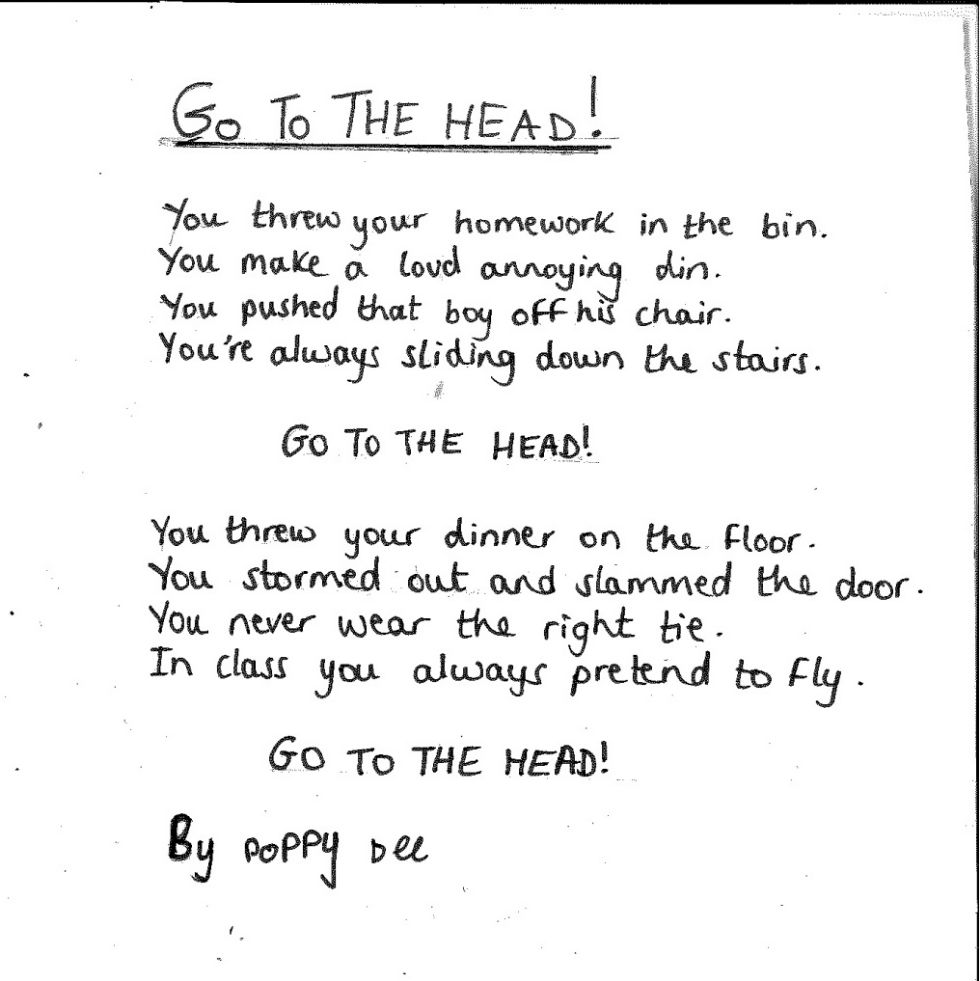 GO TO THE HEAD!
You threw your homework in the bin.
You make a loud annoying din.
You pushed that boy off his chair.
You're always sliding down the stairs.
GO TO THE HEAD!
You threw your dinner on the floor.
You stormed out and slammed the door.
You never wear the right tie.
In class you always pretend to fly.
GO TO THE HEAD!
By POPPY Dee